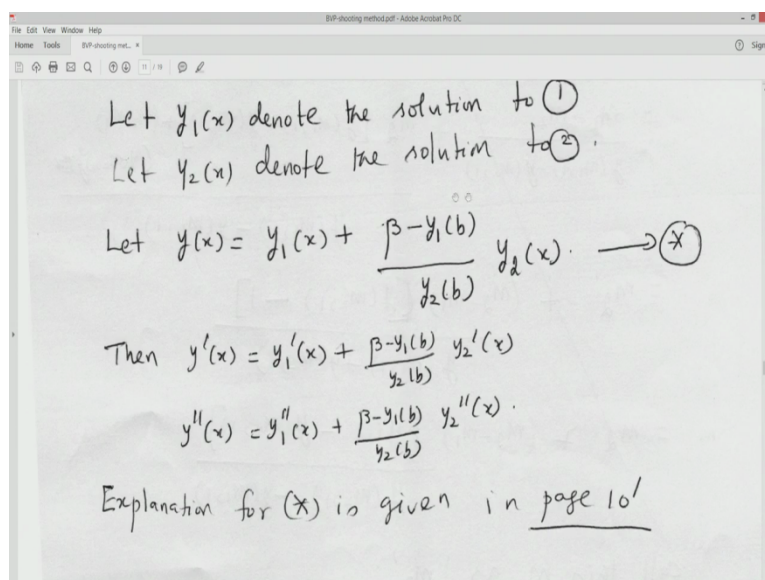 BVP-shooting method.pdf - Adobe Acrobat Pro DC
File Edit View Window Help
Home Tools BVP-shooting met... × Sign
11 / 19
Let y₁(x) denote the solution to ①
Let y₂(x) denote the solution to ②.
Let y(x) = y₁(x) + (β - y₁(b))/(y₂(b)) y₂(x). → (*)
Then y'(x) = y₁'(x) + (β - y₁(b))/(y₂(b)) y₂'(x)
y''(x) = y₁''(x) + (β - y₁(b))/(y₂(b)) y₂''(x).
Explanation for (*) is given in page 10'